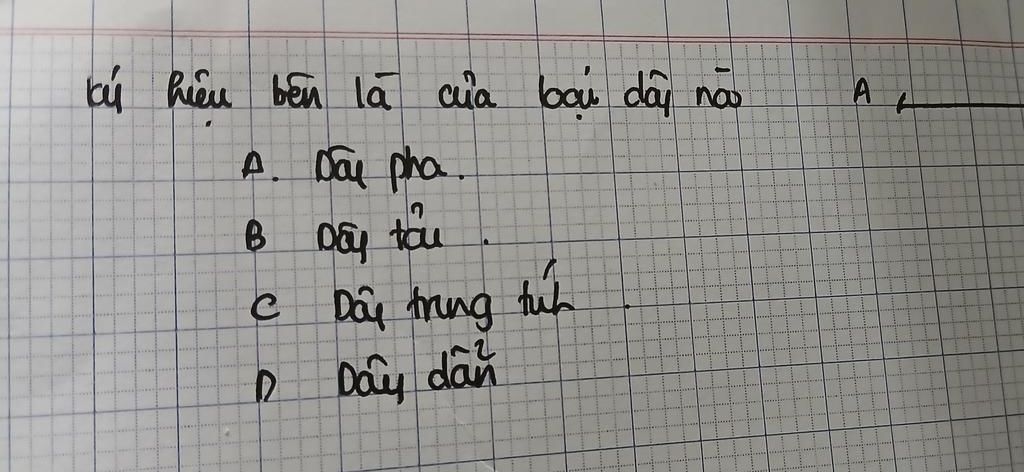 ký hiệu bên là của loại dây nào A
A. Dây pha.
B Dây tải.
C Dây trung tính.
D Dây dẫn